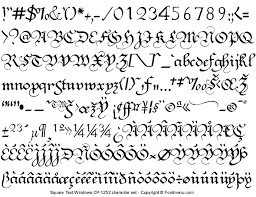 !"#$%&'()*+,-./0123456789:;<=
>?@ABCDEFGHIJKLMNOPQ
RSTUVWXYZ[\]^_`abcdefghijkl
mnopqrstuvwxyz{|}~ƒ„…†‡ˆ‰Š‹ŒŽ
""•–—˜™š›œžŸ ¡¢£¤¥¦§¨©ª«¬­®¯°
±²³´µ¶·¸¹º»¼½¾¿ÀÁÂÃÄÅÆÇ
ÈÉÊËÌÍÎÏÐÑÒÓÔÕÖ×ØÙÚÛÜÝÞ
ßàáâãäåæçèéêëìíîïðñòóôõö÷øùúûüýþÿ
Square Text Windows CP-1252 character set - Copyright © Fontmenu.com